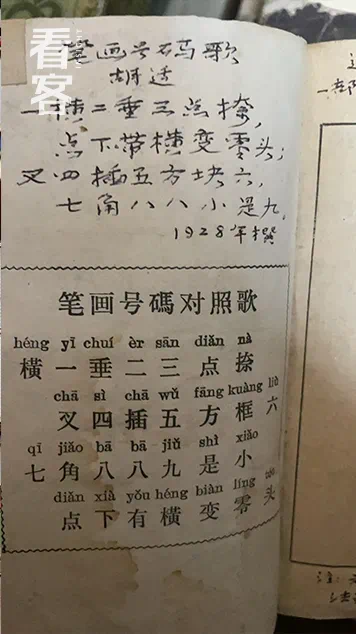 看客
笔画号码歌
胡适
一横二垂三点捺,
点下带横变零头;
叉四插五方块六,
七角八八小是九,
1928年撰
笔画号碼对照歌
héng yī chuí èr sān diǎn nà
横一垂二三点捺
chā sì chā wǔ fāng kuàng liù
叉四插五方框六
qī jiǎo bā bā jiǔ shì xiǎo
七角八八九是小
diǎn xià yǒu héng biàn líng
点下有横变零头
注: